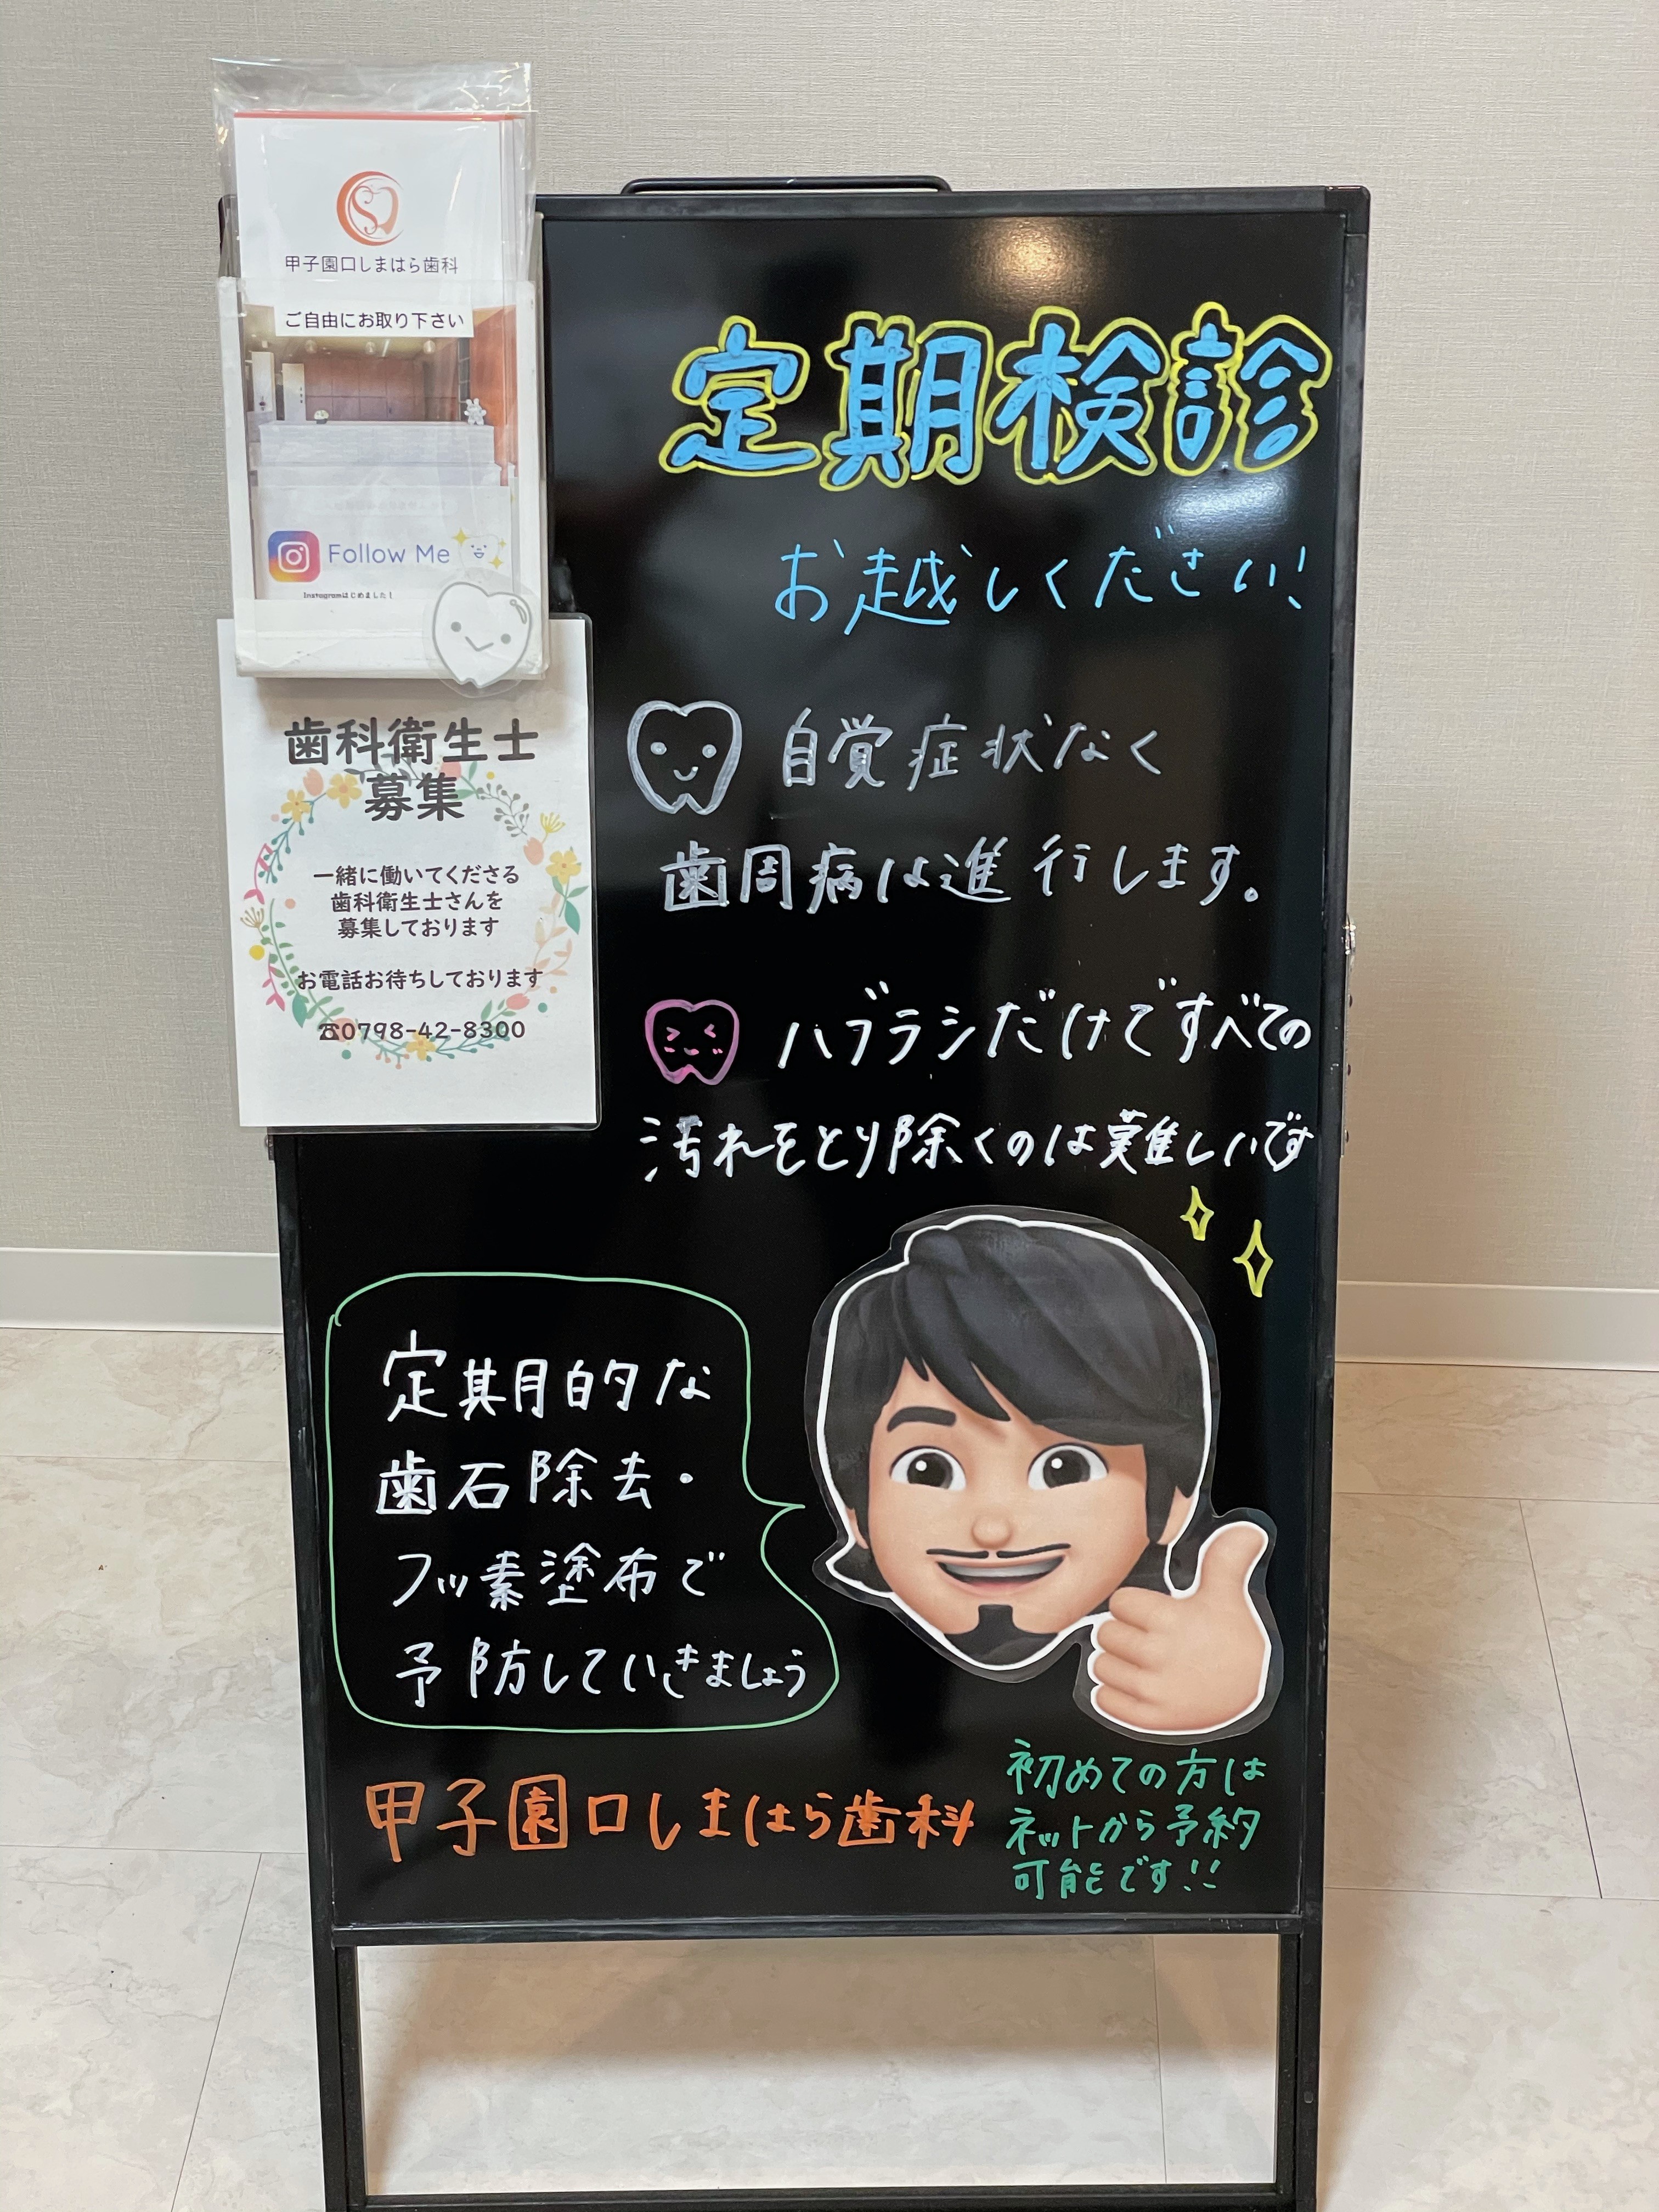 甲子園口しまはら歯科
ご自由にお取り下さい
Follow Me
Instagramはじめました!
歯科衛生士
募集
一緒に働いてくださる
歯科衛生士さんを
募集しております
お電話お待ちしております
☎0798-42-8300
定期検診
お越しください!
自覚症状なく
歯周病は進行します。
ハブラシだけですべての
汚れをとり除くのは難しいです
定期的な
歯石除去・
フッ素塗布で
予防していきましょう
甲子園口しまはら歯科
初めての方は
ネットから予約
可能です!!